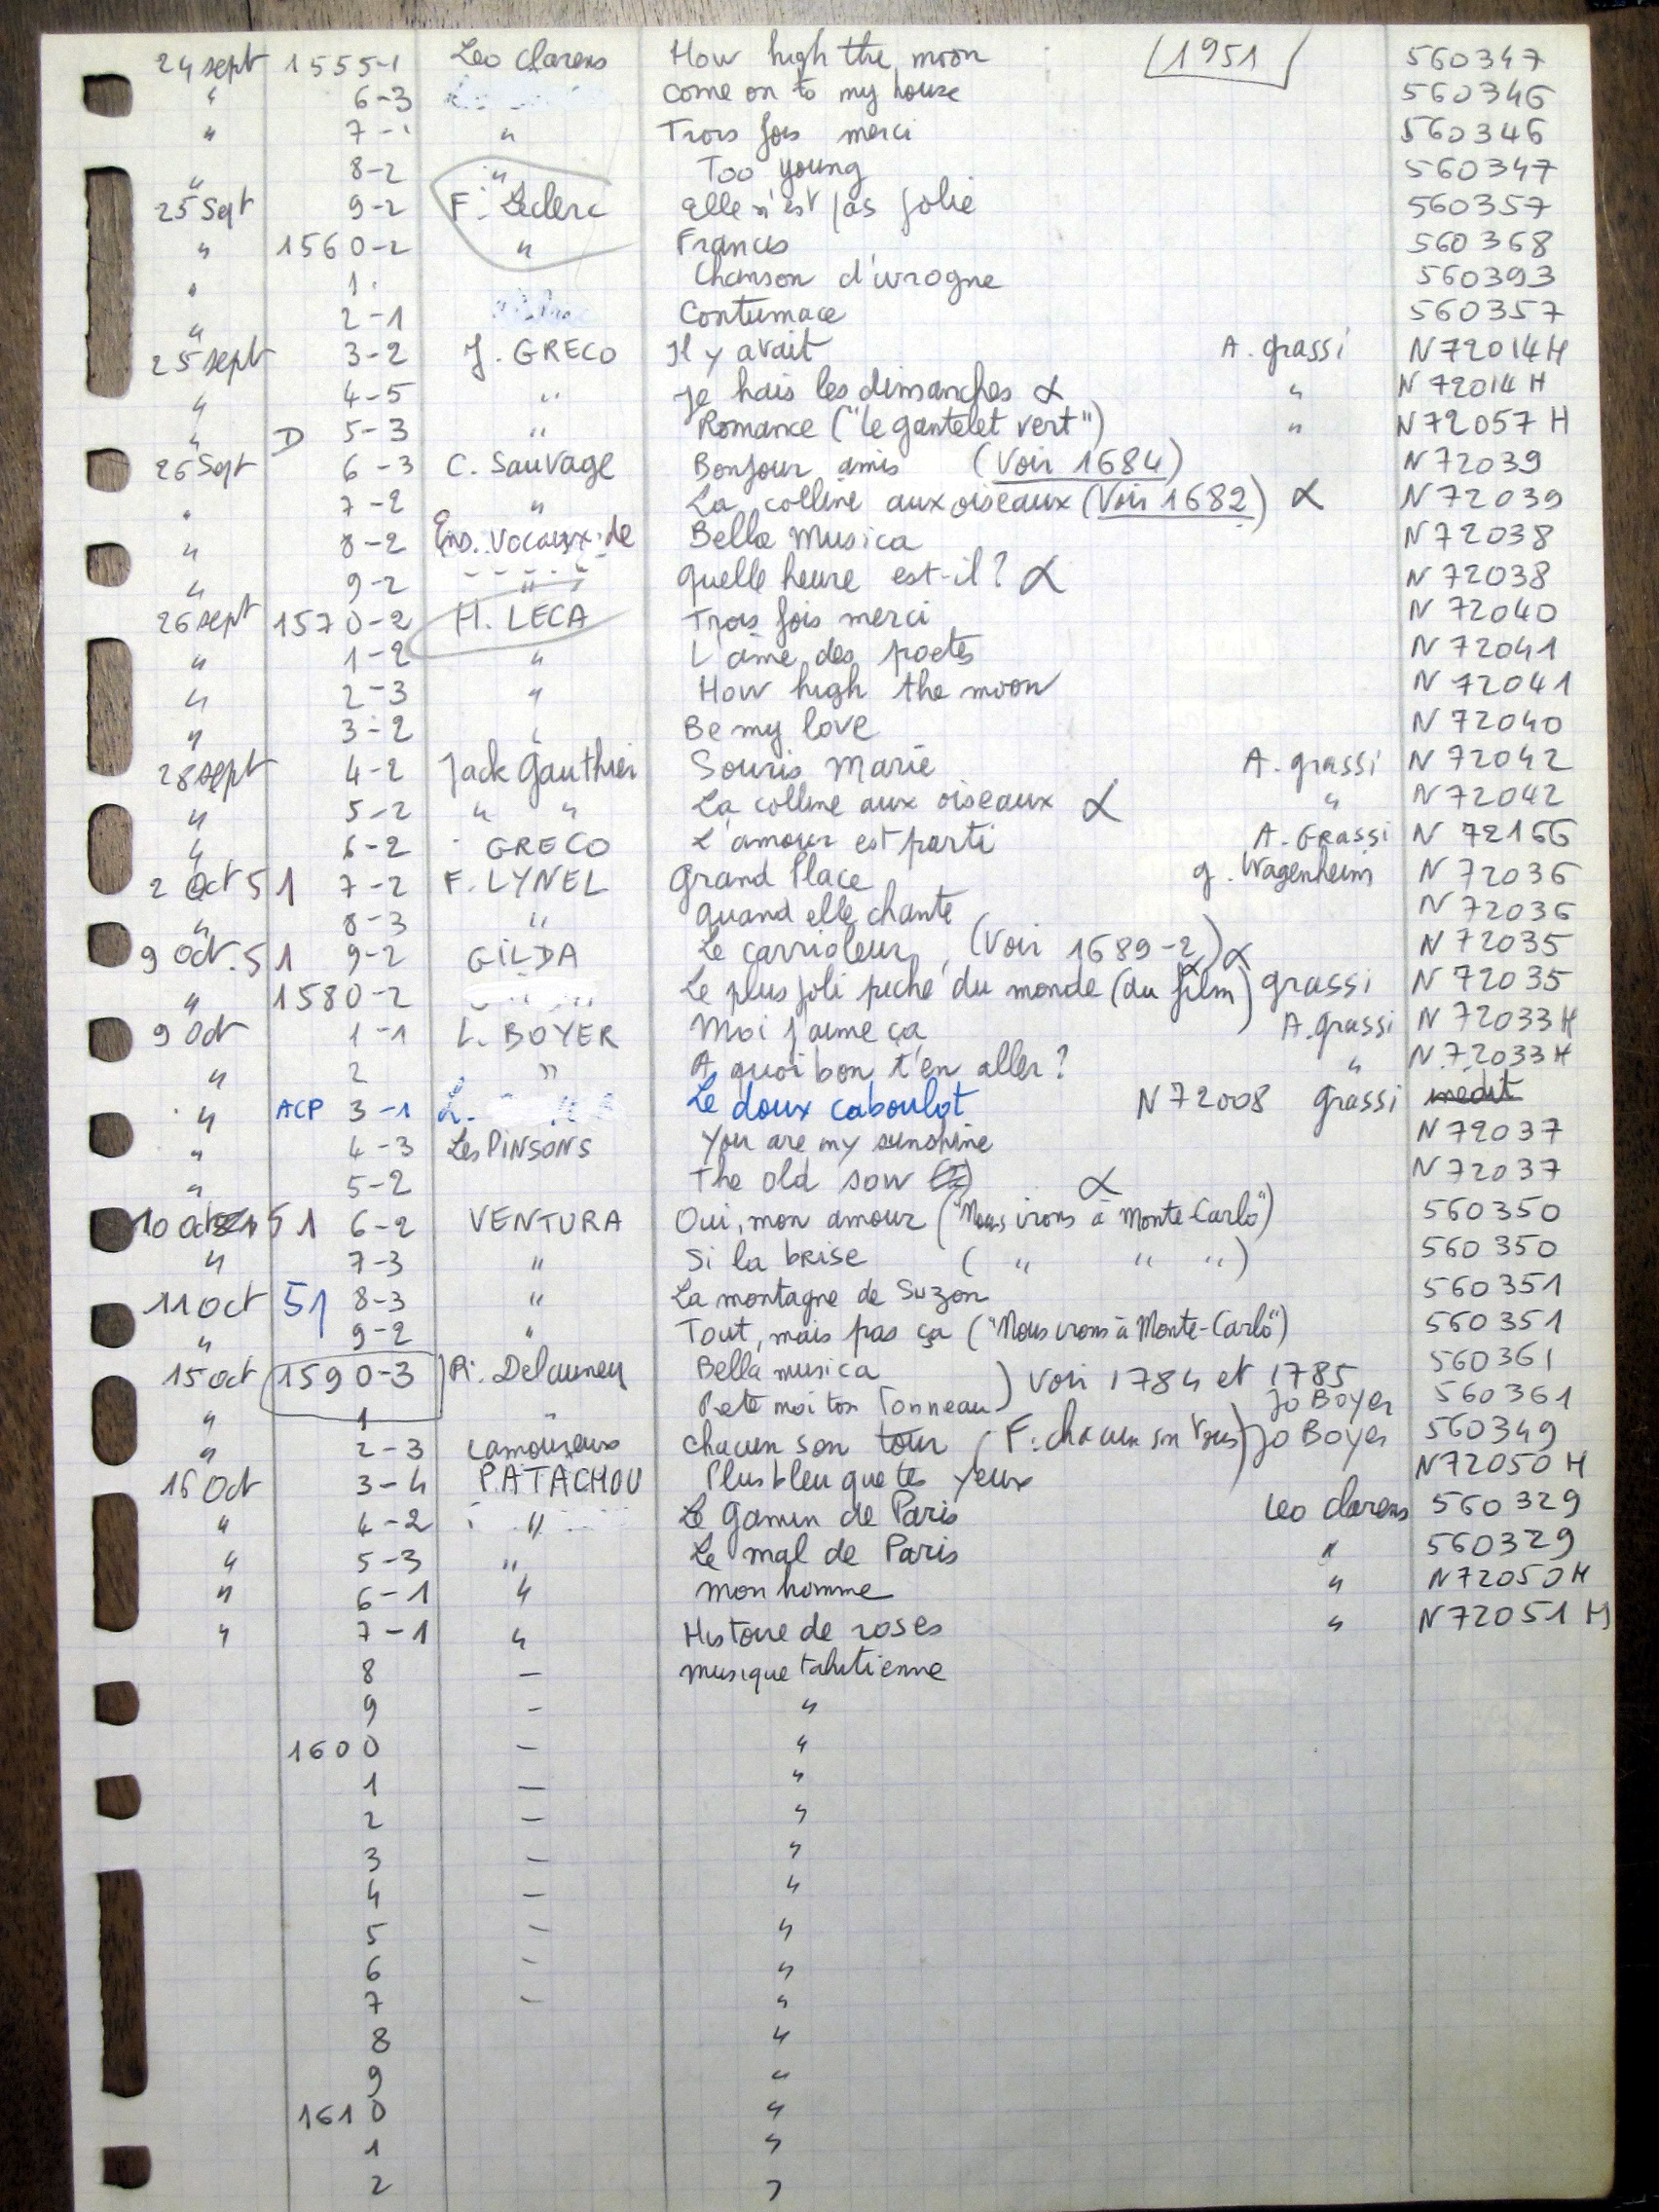 24 sept 1555-1 Leo Clarens How high the moon 1951 560347
" 6-3 come on to my house 560346
" 7-1 " Trois fois merci 560346
" 8-2 " Too young 560347
25 Sept 9-2 F. Leclerc Elle n'est pas jolie 560357
" 1560-2 " Francis 560368
" 1 Chanson d'ivrogne 560393
" 2-1 Contumace 560357
25 sept 3-2 J. GRECO Il y avait A. grassi N72014H
" 4-5 " Je hais les dimanches α " N72014H
" D 5-3 " Romance ("le gantelet vert") " N72057H
26 Sept 6-3 C. Sauvage Bonjour amis (Voir 1684) N72039
" 7-2 " La colline aux oiseaux (Voir 1682) α N72039
" 8-2 Ens. Vocaux de Bella Musica N72038
" 9-2 " Quelle heure est-il? α N72038
26 sept 1570-2 H. LECA Trois fois merci N72040
" 1-2 " L'âme des poetes N72041
" 2-3 " How high the moon N72041
" 3-2 " Be my love N72040
28 sept 4-2 Jack Gauthier Souris Marie A. grassi N72042
" 5-2 " " La colline aux oiseaux α " N72042
" 6-2 GRECO L'amour est parti A. GRassi N72166
2 Oct 51 7-2 F. LYNEL Grand Place g. Wagenheim N72036
" 8-3 " Quand elle chante N72036
9 Oct. 51 9-2 GILDA Le carrioleur (Voir 1689-2) α N72035
" 1580-2 Le plus joli peché du monde (du film) grassi N72035
9 Oct 1-1 L. BOYER Moi j'aime ça A. grassi N72033H
" 2 " A quoi bon t'en aller? " N72033H
" ACP 3-1 L. Le doux caboulot N72008 grassi inédit
" 4-3 Les PINSONS You are my sunshine N72037
" 5-2 The old sow N72037
10 oct 51 6-2 VENTURA Oui, mon amour ("Nous irons à Monte-Carlo") α 560350
" 7-3 " Si la brise ( " " " ) 560350
11 oct 51 8-3 " La montagne de Suzon 560351
" 9-2 " Tout, mais pas ça ("Nous irons à Monte-Carlo") 560351
15 oct 1590-3 R. Delauney Bella musica ) voir 1784 et 1785 560361
" 1 " Pete moi ton Tonneau ) Jo Boyer 560361
" 2-3 Lamoureux chacun son tour (F: chacun son ) Jo Boyer 560349
16 Oct 3-4 PATACHOU Plus bleu que tes yeux N72050H
" 4-2 " Le Gamin de Paris Leo clarens 560329
" 5-3 " Le mal de Paris " 560329
" 6-1 " mon homme " N72050H
" 7-1 " Histoire de roses " N72051H
8 - musique tahitienne
9 - "
1600 - "
1 - "
2 - "
3 - "
4 - "
5 - "
6 - "
7 - "
8 "
9 "
1610 "
1 "
2 "